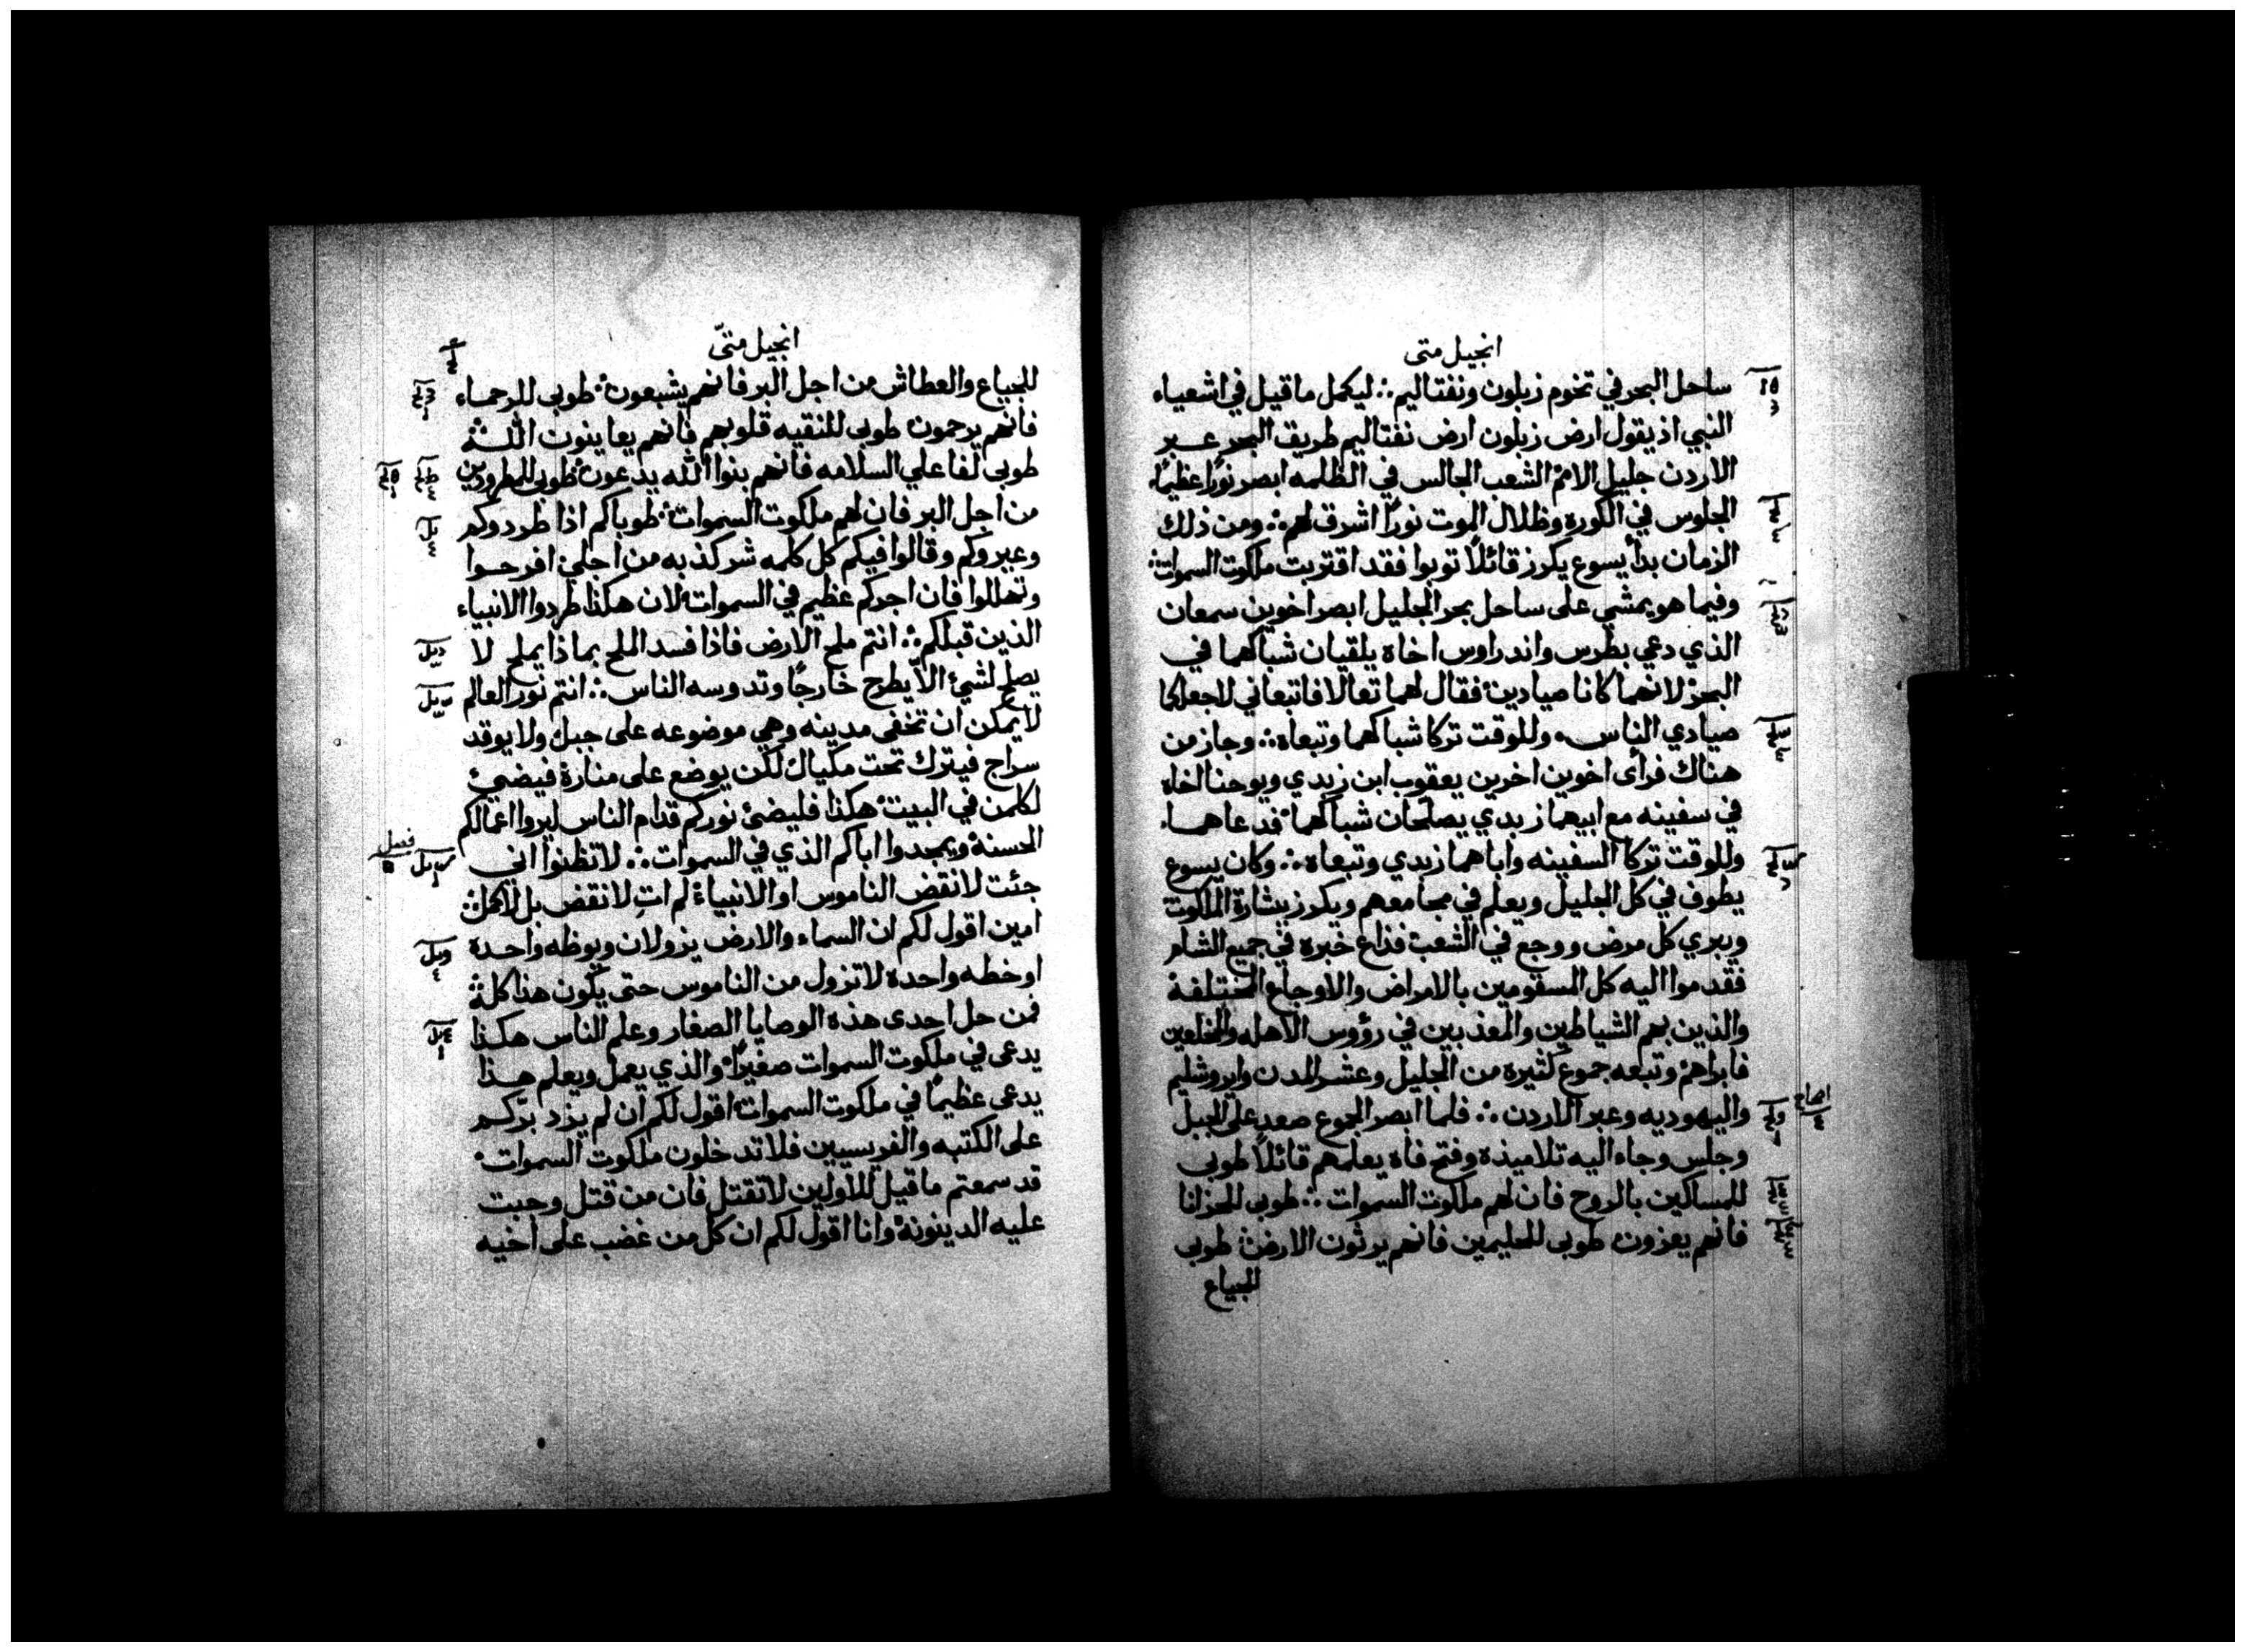 انجيل متى
ساحل البحر في تخوم زبلون ونفتاليم ∴ ليكمل ما قيل في اشعياء
النبي اذ يقول ارض زبلون ارض نفتاليم طريق البحر عبر
الاردن جليل الامم الشعب الجالس في الظلمه ابصر نورًا عظيمًا
الجلوس في الكوره وظلال الموت نورًا اشرق لهم ∴ ومن ذلك
الزمان بدأ يسوع يكرز قائلًا توبوا فقد اقتربت ملكوت السموات
وفيما هو يمشي على ساحل بحر الجليل ابصر اخوين سمعان
الذي دعي بطرس واندراوس اخاه يلقيان شباكهما في
البحر لانهما كانا صيادين فقال لهما تعالا فاتبعاني لاجعلكما
صيادي الناس وللوقت تركا شباكهما وتبعاه ∴ وجاز من
هناك فرأى اخوين اخرين يعقوب ابن زبدي ويوحنا اخاه
في سفينه مع ابيهما زبدي يصلحان شباكهما فدعاهما
وللوقت تركا السفينه واباهما زبدي وتبعاه ∴ وكان يسوع
يطوف في كل الجليل ويعلم في مجامعهم ويكرز ببشارة الملكوت
ويبري كل مرض ووجع في الشعب فذاع خبره في جميع الشام
فقدموا اليه كل السقومين بالامراض والاوجاع المختلفة
والذين بهم الشياطين والمعذبين في رؤوس الاهله والمخلعين
فابراهم وتبعه جموع كثيره من الجليل وعشر المدن وايروشليم
واليهوديه وعبر الاردن ∴ فلما ابصر الجموع صعد على الجبل
وجلس وجاء اليه تلاميذه وفتح فاه يعلمهم قائلًا طوبى
للمساكين بالروح فان لهم ملكوت السموات ∴ طوبى للحزانا
فانهم يعزون طوبى للحليمين فانهم يرثون الارض طوبى
للجياع
انجيل متّى
للجياع والعطاش من اجل البر فانهم يشبعون طوبى للرحماء
فانهم يرحمون طوبى للنقيه قلوبهم فانهم يعاينون الله
طوبى لفاعلي السلامه فانهم بنوا الله يدعون طوبى للمطرودين
من اجل البر فان لهم ملكوت السموات طوباكم اذا طردوكم
وعيروكم وقالوا فيكم كل كلمه شر كذبه من اجلي افرحوا
وتهللوا فان اجركم عظيم في السموات لان هكذا طردوا الانبياء
الذين قبلكم ∴ انتم ملح الارض فاذا فسد الملح بماذا يملح لا
يصلح لشيئ الا يطرح خارجًا وتدوسه الناس ∴ انتم نور العالم
لا يمكن ان تخفى مدينه وهي موضوعه على جبل ولا يوقد
سراج فيترك تحت مكيال لكن يوضع على منارة فيضيئ
لكلمن في البيت هكذا فليضئ نوركم قدام الناس ليروا اعمالكم
الحسنة ويمجدوا اباكم الذي في السموات ∴ لا تظنوا اني
فصل
جئت لانقض الناموس او الانبياء لم اتِ لانقض بل لاكمل
امين اقول لكم ان السماء والارض يزولان ويوطه واحدة
او خطه واحده لا تزول من الناموس حتى يكون هذا كله
فمن حل احدى هذه الوصايا الصغار وعلم الناس هكذا
يدعى في ملكوت السموات صغيرًا والذي يعمل ويعلم هذا
يدعى عظيمًا في ملكوت السموات اقول لكم ان لم يزد برّكم
على الكتبه والفريسيين فلا تدخلون ملكوت السموات
قد سمعتم ما قيل للاولين لا تقتل فان من قتل وجبت
عليه الدينونة وانا اقول لكم ان كل من غضب على اخيه